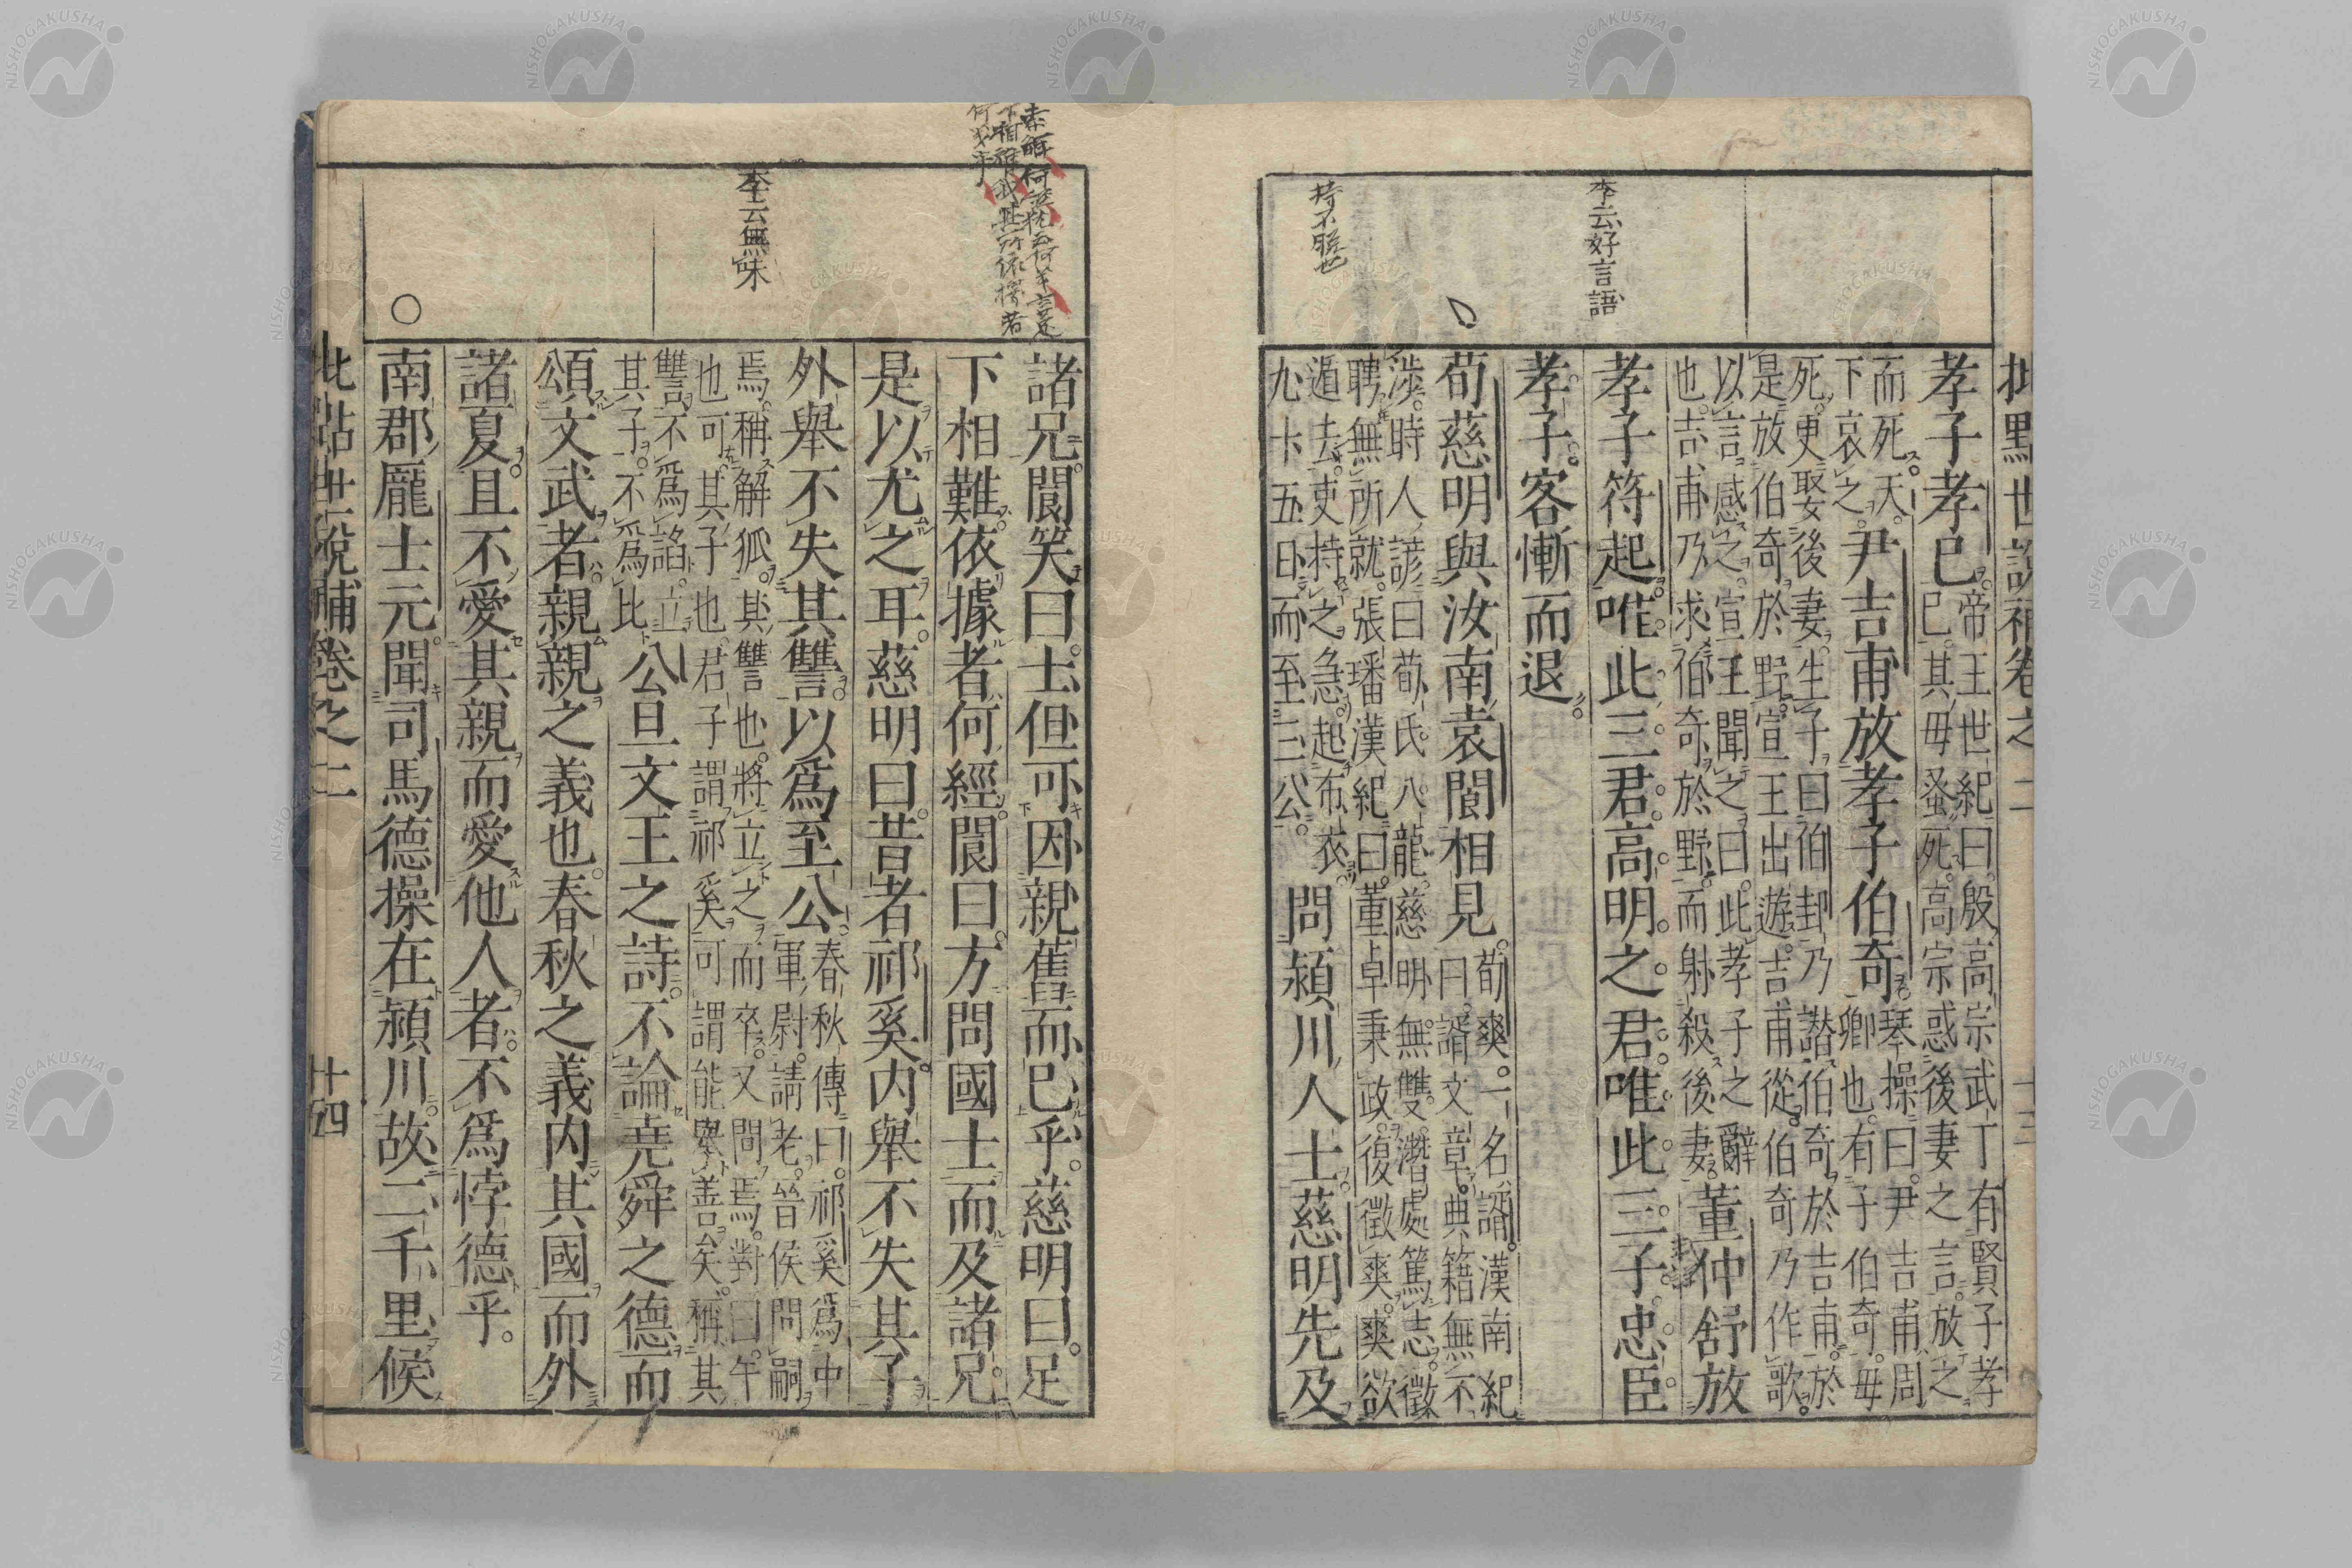 孝子孝已帝王世紀曰殷高宗武丁有賢子孝
已其母蚤死高宗惑後妻之言放之
而死天
下哀之尹吉甫放孝子伯奇琴操曰尹吉甫周
卿也有子伯奇母
死更娶後妻生子曰伯邽乃譖伯奇於吉甫於
是放伯奇於野宣王出遊吉甫從伯奇乃作歌
以言感之宣王聞之曰此孝子之辭
也吉甫乃求伯奇於野而射殺後妻董仲舒放
孝子符起唯此三君高明之君唯此三子忠臣
孝子客慚而退
荀慈明與汝南袁閬相見荀爽一名諝漢南紀
曰諝文章典籍無不
涉時人諺曰荀氏八龍慈明無雙潛處篤志徵
聘無所就張璠漢紀曰董卓秉政復徵爽爽欲
遁去吏持之急起布衣
九十五日而至三公問潁川人士慈明先及
李云好言語
持不脫也
諸兄閬笑曰士但可因親舊而已乎慈明曰足
下相難依據者何經閬曰方問國士而及諸兄
是以尤之耳慈明曰昔者祁奚内舉不失其子
外舉不失其讐以爲至公春秋傳曰祁奚爲中
軍尉請老晉侯問嗣
焉稱解狐其讐也將立之而卒又問焉對曰午
也可其子也君子謂祁奚可謂能舉善矣稱其
讐不爲諂立
其子不爲比公旦文王之詩不論堯舜之德而
頌文武者親親之義也春秋之義内其國而外
諸夏且不愛其親而愛他人者不爲悖德乎
南郡龐士元聞司馬德操在潁川故二千里候
李云無味
批點世說補卷之二
十四
批點世說補卷之二
十三
NISHOGAKUSHA